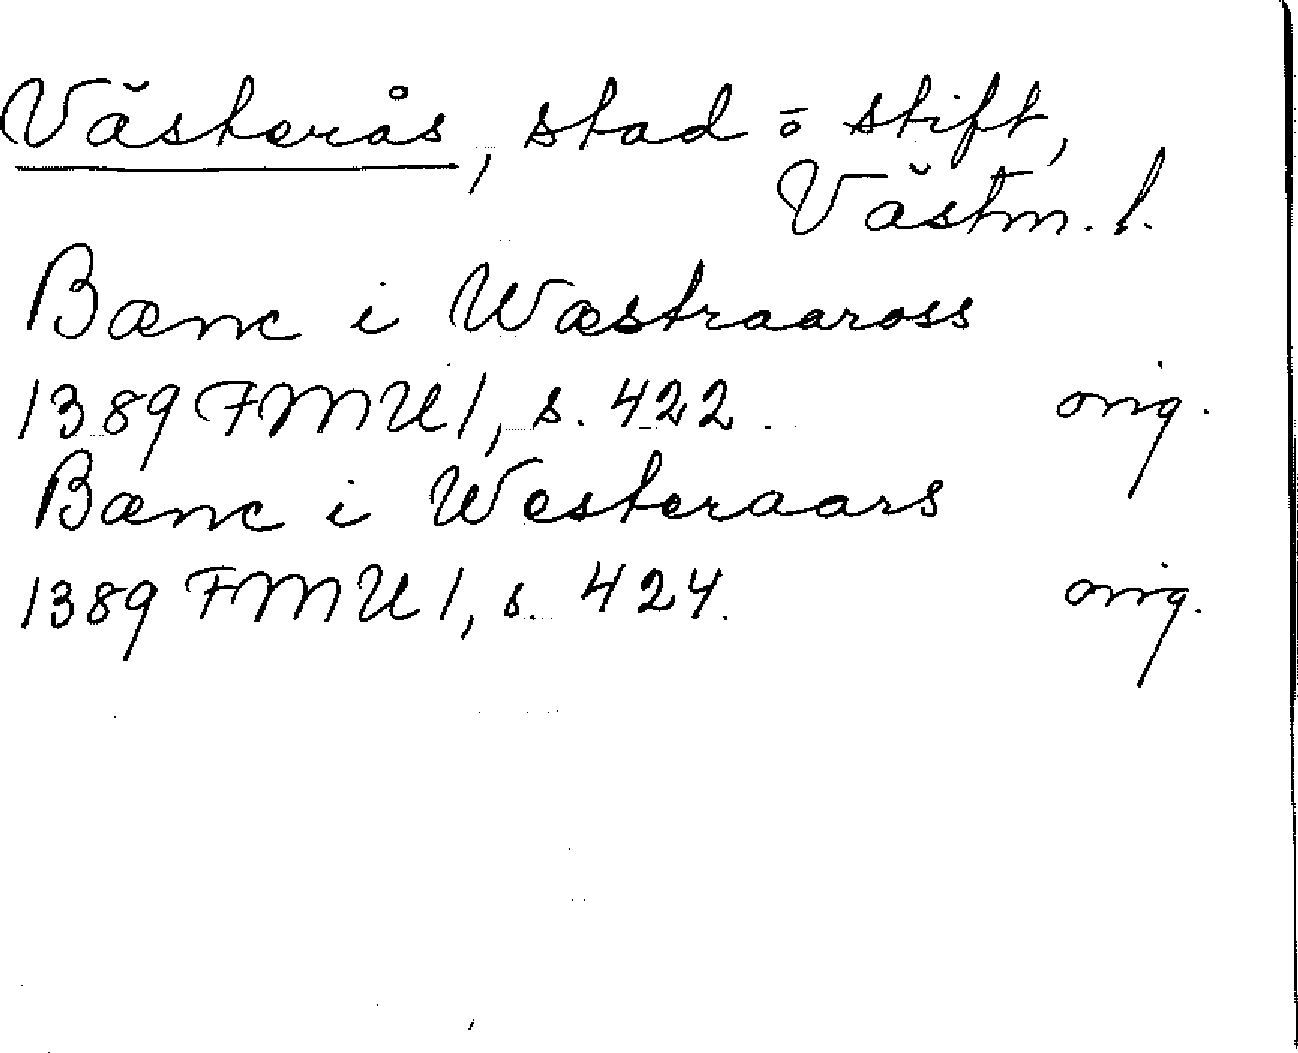 Västerås, stad o stift,
Västm. l.
Bænc i Wæstraaross
1389 FMU 1, s. 422. orig.
Bænc i Westeraars
1389 FMU 1, s. 424. orig.